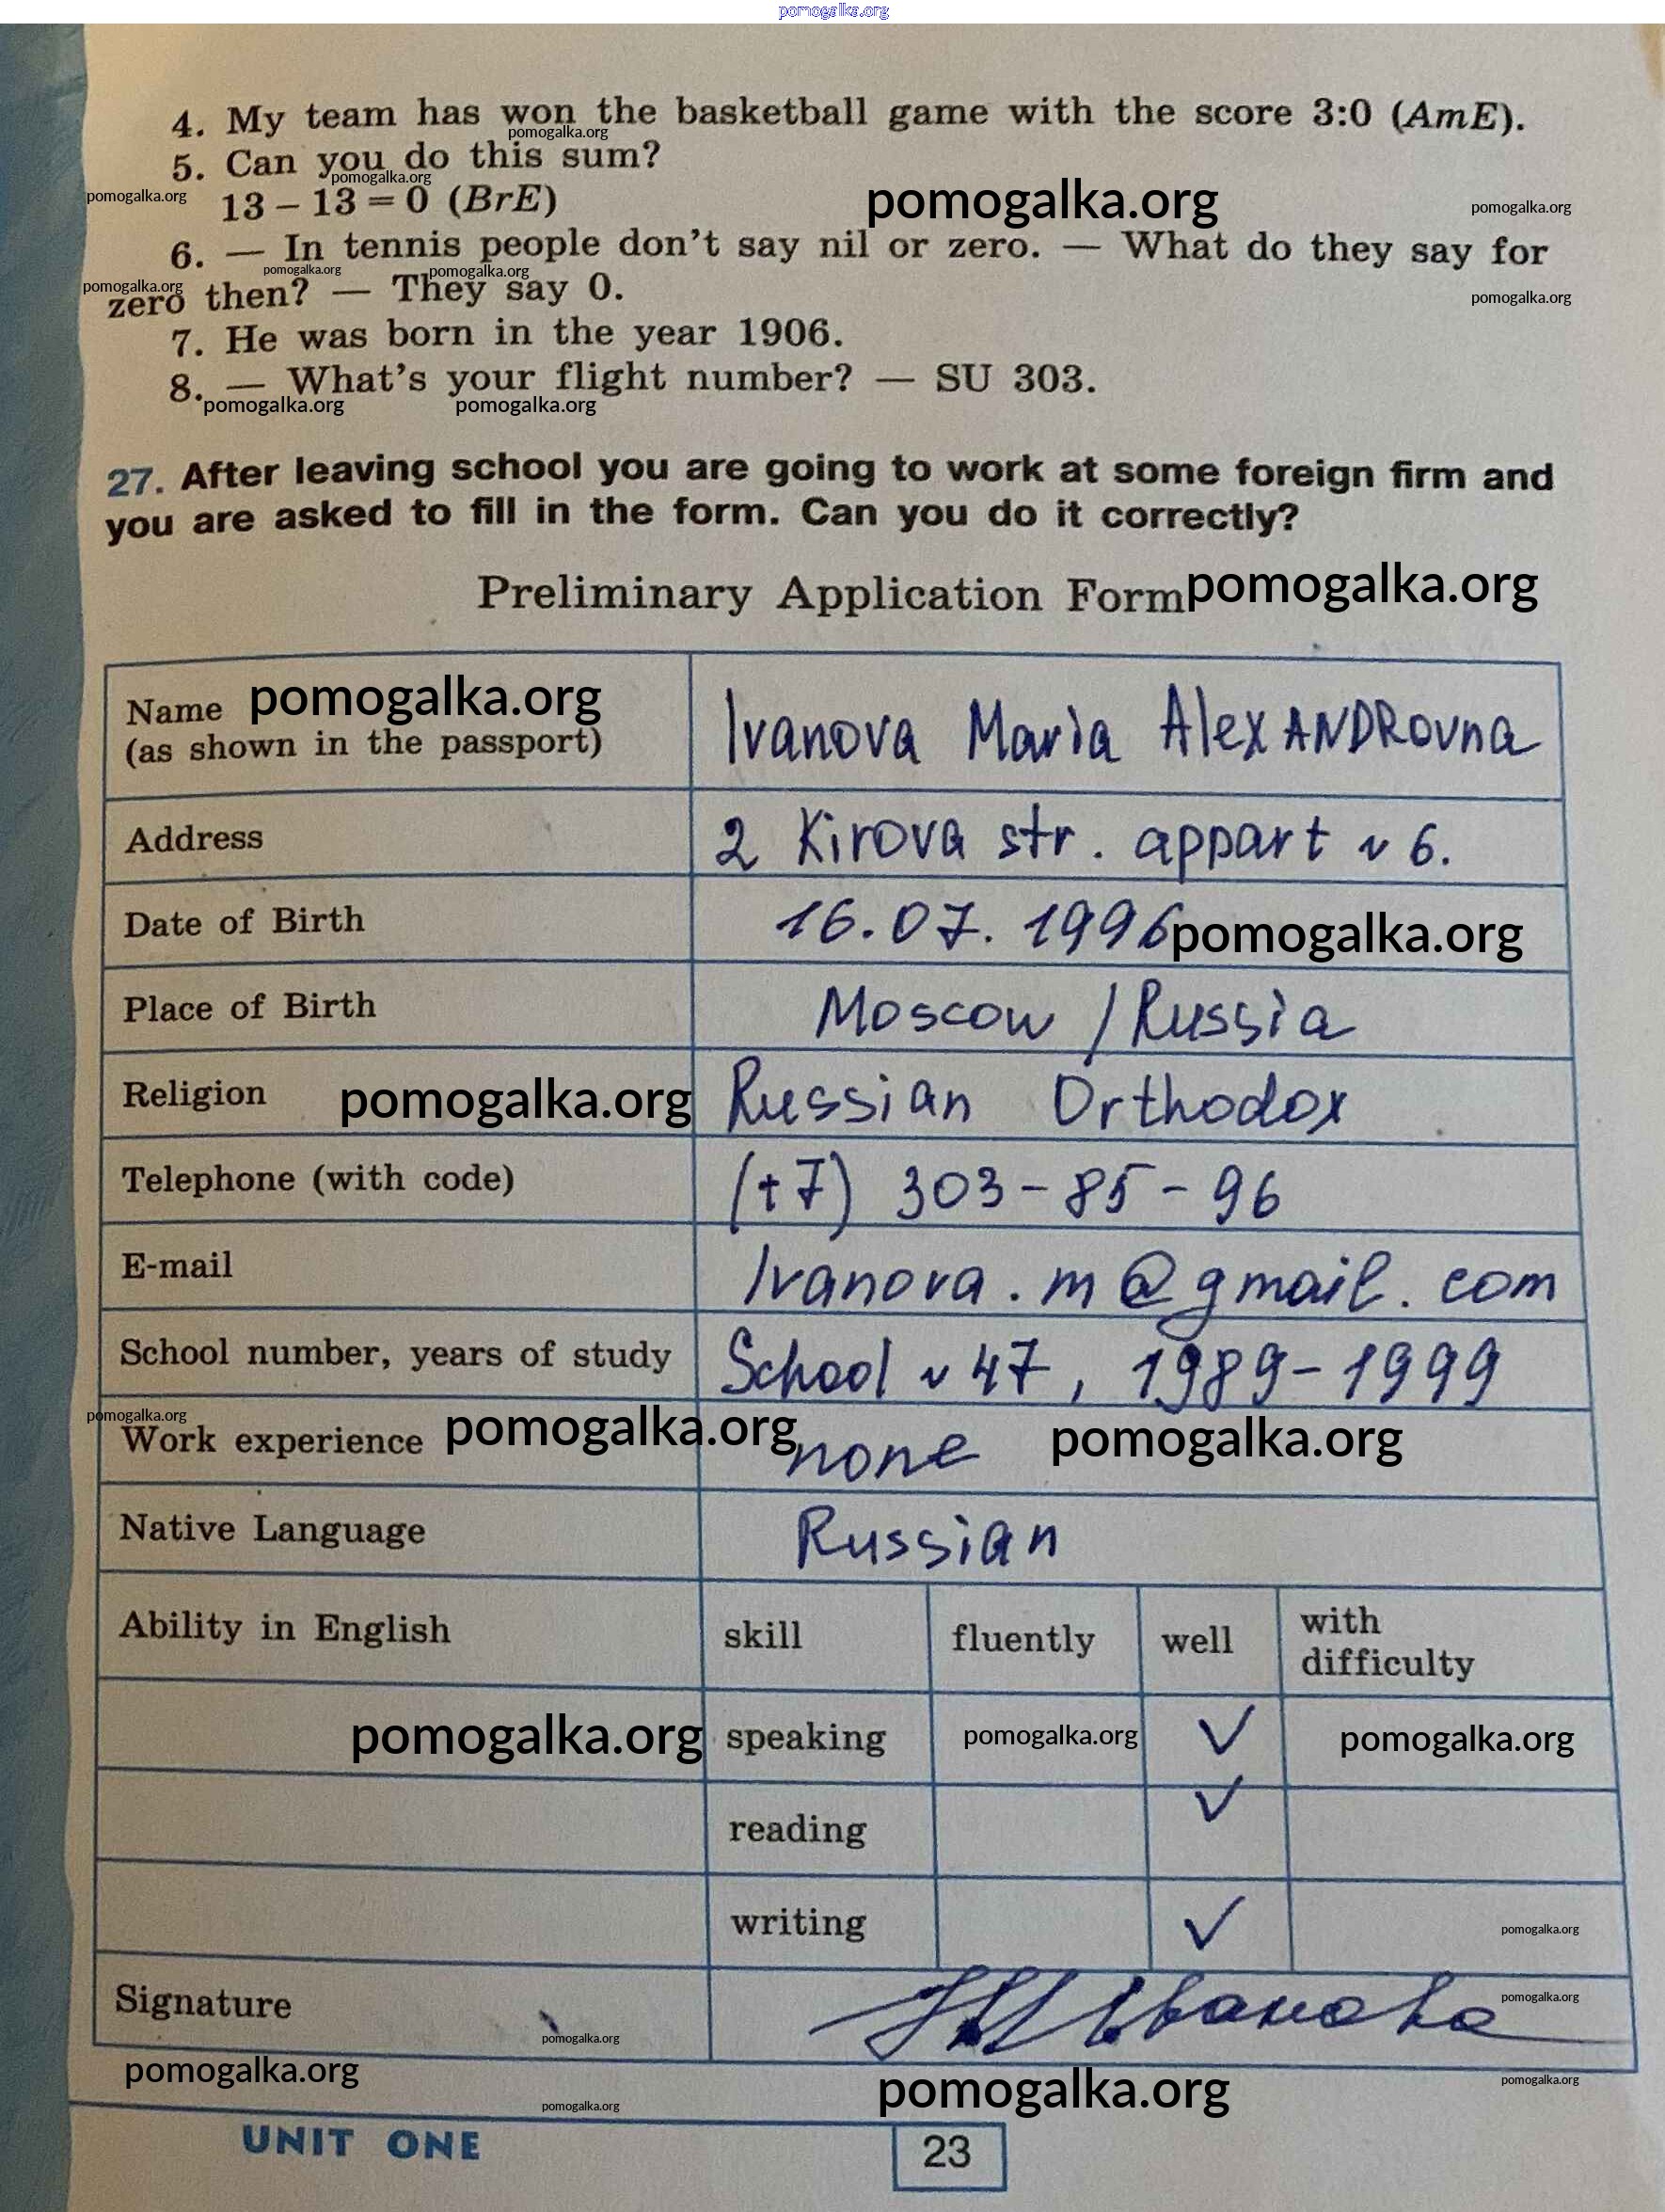 pomogalka.org
4. My team has won the basketball game with the score 3:0 (AmE).
pomogalka.org
5. Can you do this sum?
pomogalka.org
pomogalka.org
13 – 13 = 0 (BrE)
pomogalka.org
pomogalka.org
6. — In tennis people don't say nil or zero. — What do they say for
pomogalka.org
pomogalka.org
pomogalka.org
zero then? — They say 0.
pomogalka.org
7. He was born in the year 1906.
8. — What's your flight number? — SU 303.
pomogalka.org
pomogalka.org
27. After leaving school you are going to work at some foreign firm and
you are asked to fill in the form. Can you do it correctly?
Preliminary Application Form
pomogalka.org
Name
pomogalka.org
(as shown in the passport)
Ivanova Maria AlexANDRovna
Address
2 Kirova str. appart № 6.
Date of Birth
16.07.1996
pomogalka.org
Place of Birth
Moscow / Russia
Religion
pomogalka.org
Russian Orthodox
Telephone (with code)
(+7) 303-85-96
E-mail
Ivanova.m@gmail.com
School number, years of study
School № 47, 1989-1999
pomogalka.org
Work experience
pomogalka.org
none
pomogalka.org
Native Language
Russian
Ability in English
skill
fluently
well
with
difficulty
pomogalka.org
speaking
pomogalka.org
✓
pomogalka.org
reading
✓
writing
✓
pomogalka.org
Signature
pomogalka.org
pomogalka.org
pomogalka.org
pomogalka.org
pomogalka.org
pomogalka.org
UNIT ONE
23